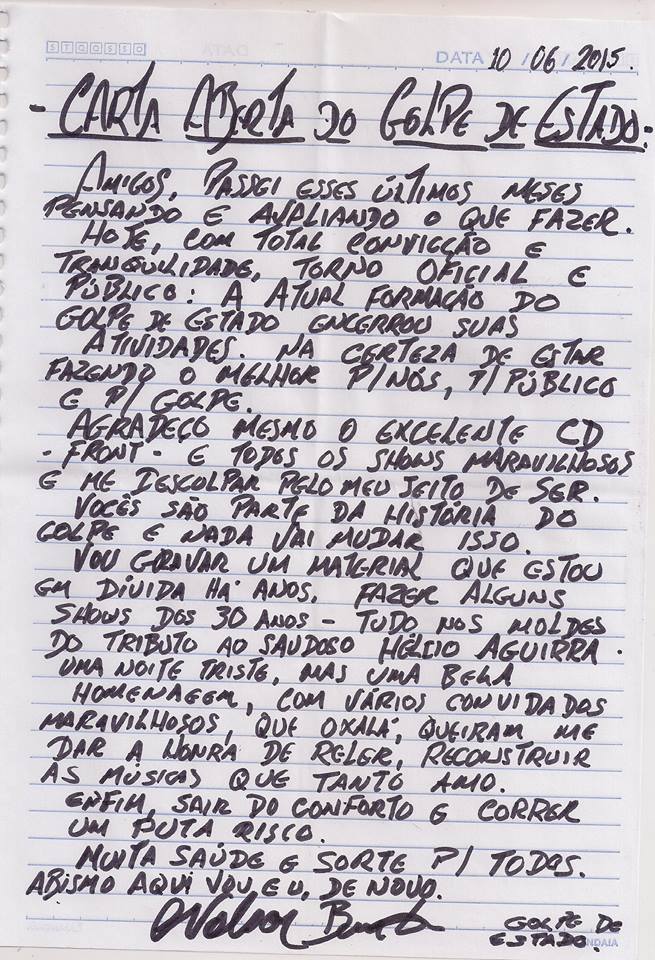 STQQSSD DATA 10 / 06 / 2015.
- CARTA ABERTA DO GOLPE DE ESTADO -
AMIGOS, PASSEI ESSES ÚLTIMOS MESES
PENSANDO E AVALIANDO O QUE FAZER.
HOJE, COM TOTAL CONVICÇÃO E
TRANQUILIDADE, TORNO OFICIAL E
PÚBLICO: A ATUAL FORMAÇÃO DO
GOLPE DE ESTADO ENCERROU SUAS
ATIVIDADES. NA CERTEZA DE ESTAR
FAZENDO O MELHOR P/NÓS, P/PÚBLICO
E P/ GOLPE.
AGRADEÇO MESMO O EXCELENTE CD
- FRONT - E TODOS OS SHOWS MARAVILHOSOS
E ME DESCULPAR PELO MEU JEITO DE SER.
VOCÊS SÃO PARTE DA HISTÓRIA DO
GOLPE E NADA VAI MUDAR ISSO.
VOU GRAVAR UM MATERIAL QUE ESTOU
EM DÍVIDA HÁ ANOS. FAZER ALGUNS
SHOWS DOS 30 ANOS - TUDO NOS MOLDES
DO TRIBUTO AO SAUDOSO HÉLCIO AGUIRRA.
UMA NOITE TRISTE, MAS UMA BELA
HOMENAGEM, COM VÁRIOS CONVIDADOS
MARAVILHOSOS, QUE OXALÁ, QUEIRAM ME
DAR A HONRA DE RELER, RECONSTRUIR
AS MÚSICAS QUE TANTO AMO.
ENFIM, SAIR DO CONFORTO E CORRER
UM PUTA RISCO.
MUITA SAÚDE E SORTE P/ TODOS.
ABISMO AQUI VOU, EU, DE NOVO.
Nelson
GOLPE DE
ESTADO.